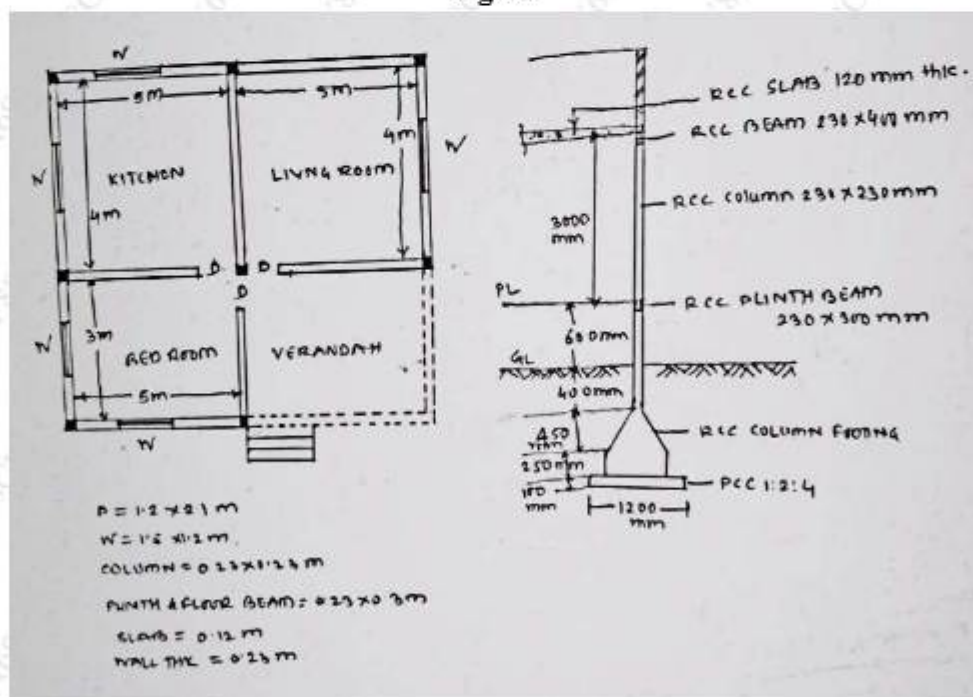 W
5m
5m
4m
W
KITCHEN
LIVNG ROOM
W
4m
D
D
D
3m
W
BED ROOM
VERANDAH
5m
W
D = 1.2 x 2.1 m
COLUMN = 0.23x0.23 m
PLINTH & FLOUR BEAM = 0.23 x 0.3 m
SLAB = 0.12 m
WALL THK = 0.23 m
RCC SLAB 120 mm thk.
RCC BEAM 230 x 400 mm
RCC column 230 x 230mm
3000
mm
PL
RCC PLINTH BEAM
230 x 300 mm
600mm
GL
400mm
RCC COLUMN FOOTING
450
mm
250mm
PCC 1:2:4
100
mm
1200
mm